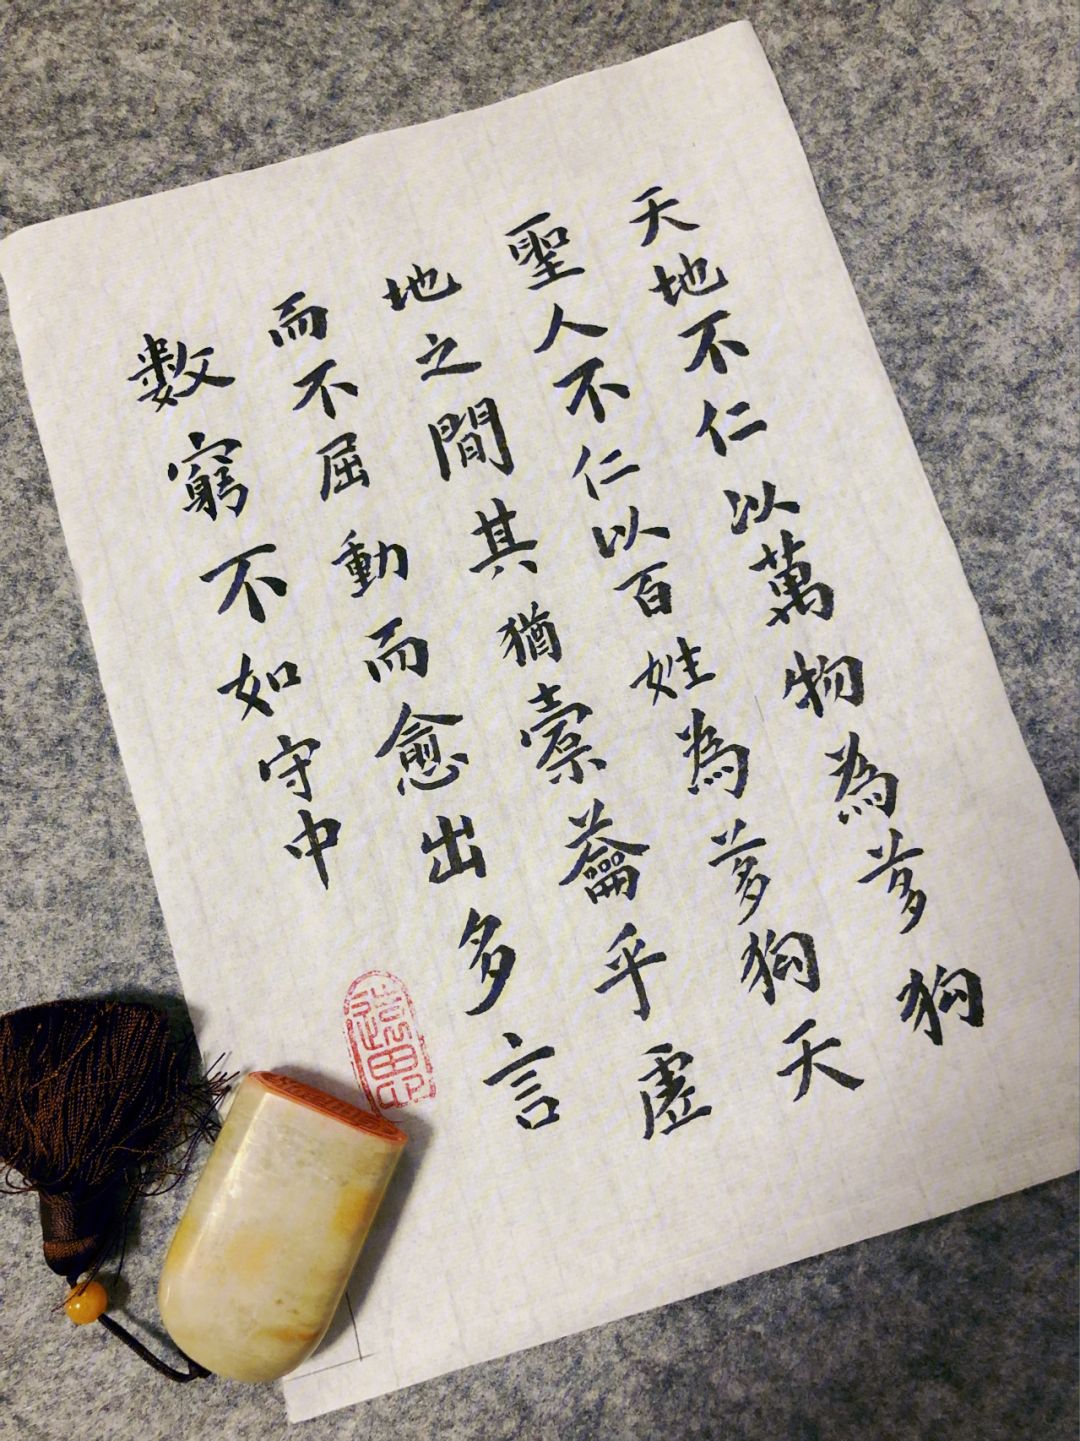 天地不仁以萬物為芻狗
聖人不仁以百姓為芻狗天
地之間其猶橐籥乎虛
而不屈動而愈出多言
數窮不如守中